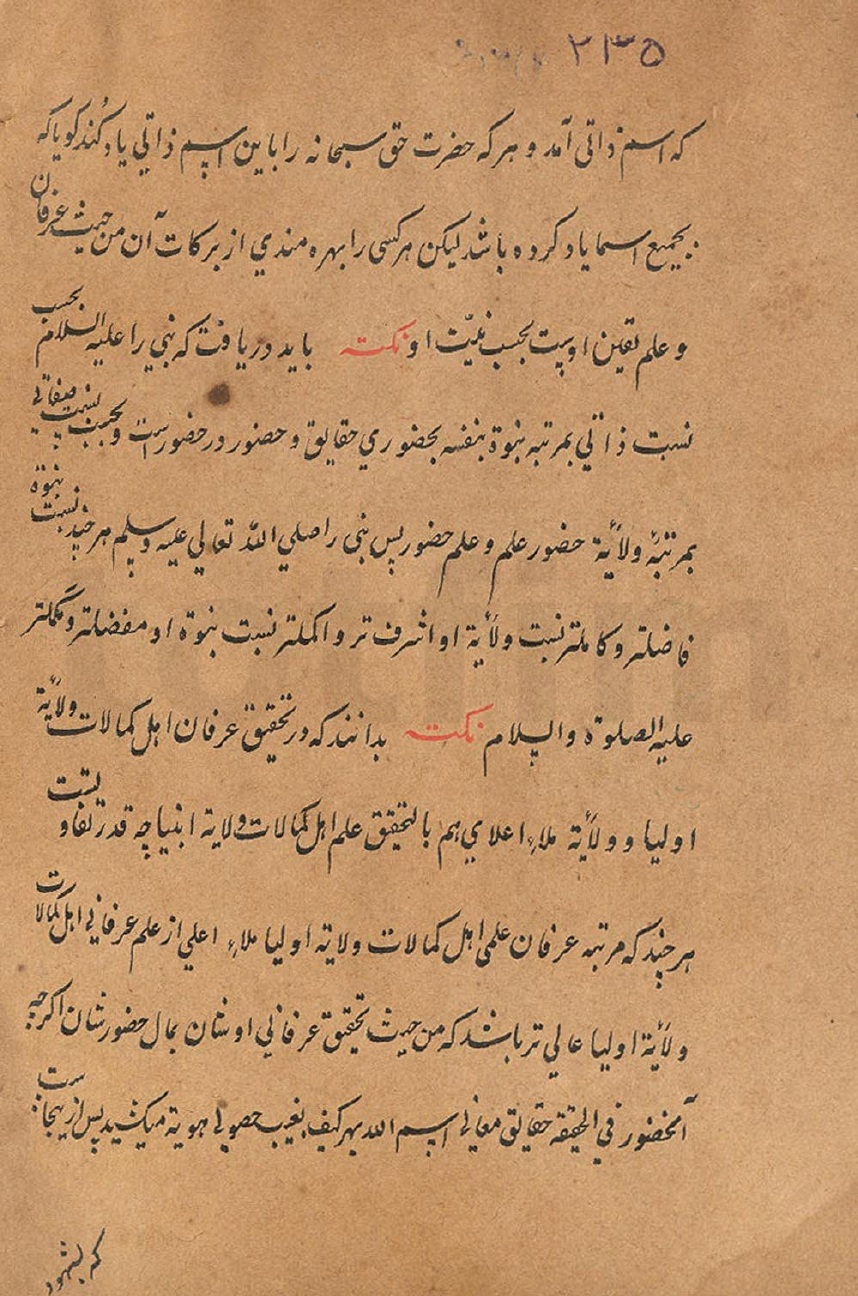 ۲۳۵
که اسم ذاتی آمد و هر که حضرت حق سبحانه را باین اسم ذاتي یاد کُند کویا که
بجمیع اسما یاد کرده باشد لیکن هر کسی را بهره مندي از برکات آن من حیث عرفان
و علم یقین اوست بحسب نیّت او نکته باید دریافت که نبي را علیه السلام بحسب
نسبت ذاتي بمرتبه نبوة بنفسه بحضوري حقایق و حضور در حضور است و بحسب نسبت صفاتي
بمرتبهٔ ولأیة حضور علم و علم حضور پس نبی را صلي الله تعالي علیه وسلم هر چند نسبت نبوة
فاضلتر و کاملتر نسبت ولأیة او اشرف تر و اکملتر نسبت نبوة او مفضلتر و مکملتر
علیه الصلوة والسلام نکته بدانند که در تحقیق عرفان اهل کمالات ولأیة
اولیا و ولأیة ملاء اعلاي هم بالتحقیق علم اهل کمالات ولایة انبیا چه قدر تفاوتست
هر چند که مرتبه عرفان علمی اهل کمالات ولایة اولیا ملاء اعلي از علم عرفاني اهل کمالات
ولأیة اولیا عالي تر باشد که من حیث تحقیق عرفاني اوشان بمال حضور شان اکرچه
آنحضور في الحقیقة حقایق معاني اسم الله بهر کیف بغیب حصولي هویة میکشید پس از ینجاست
که بشهود